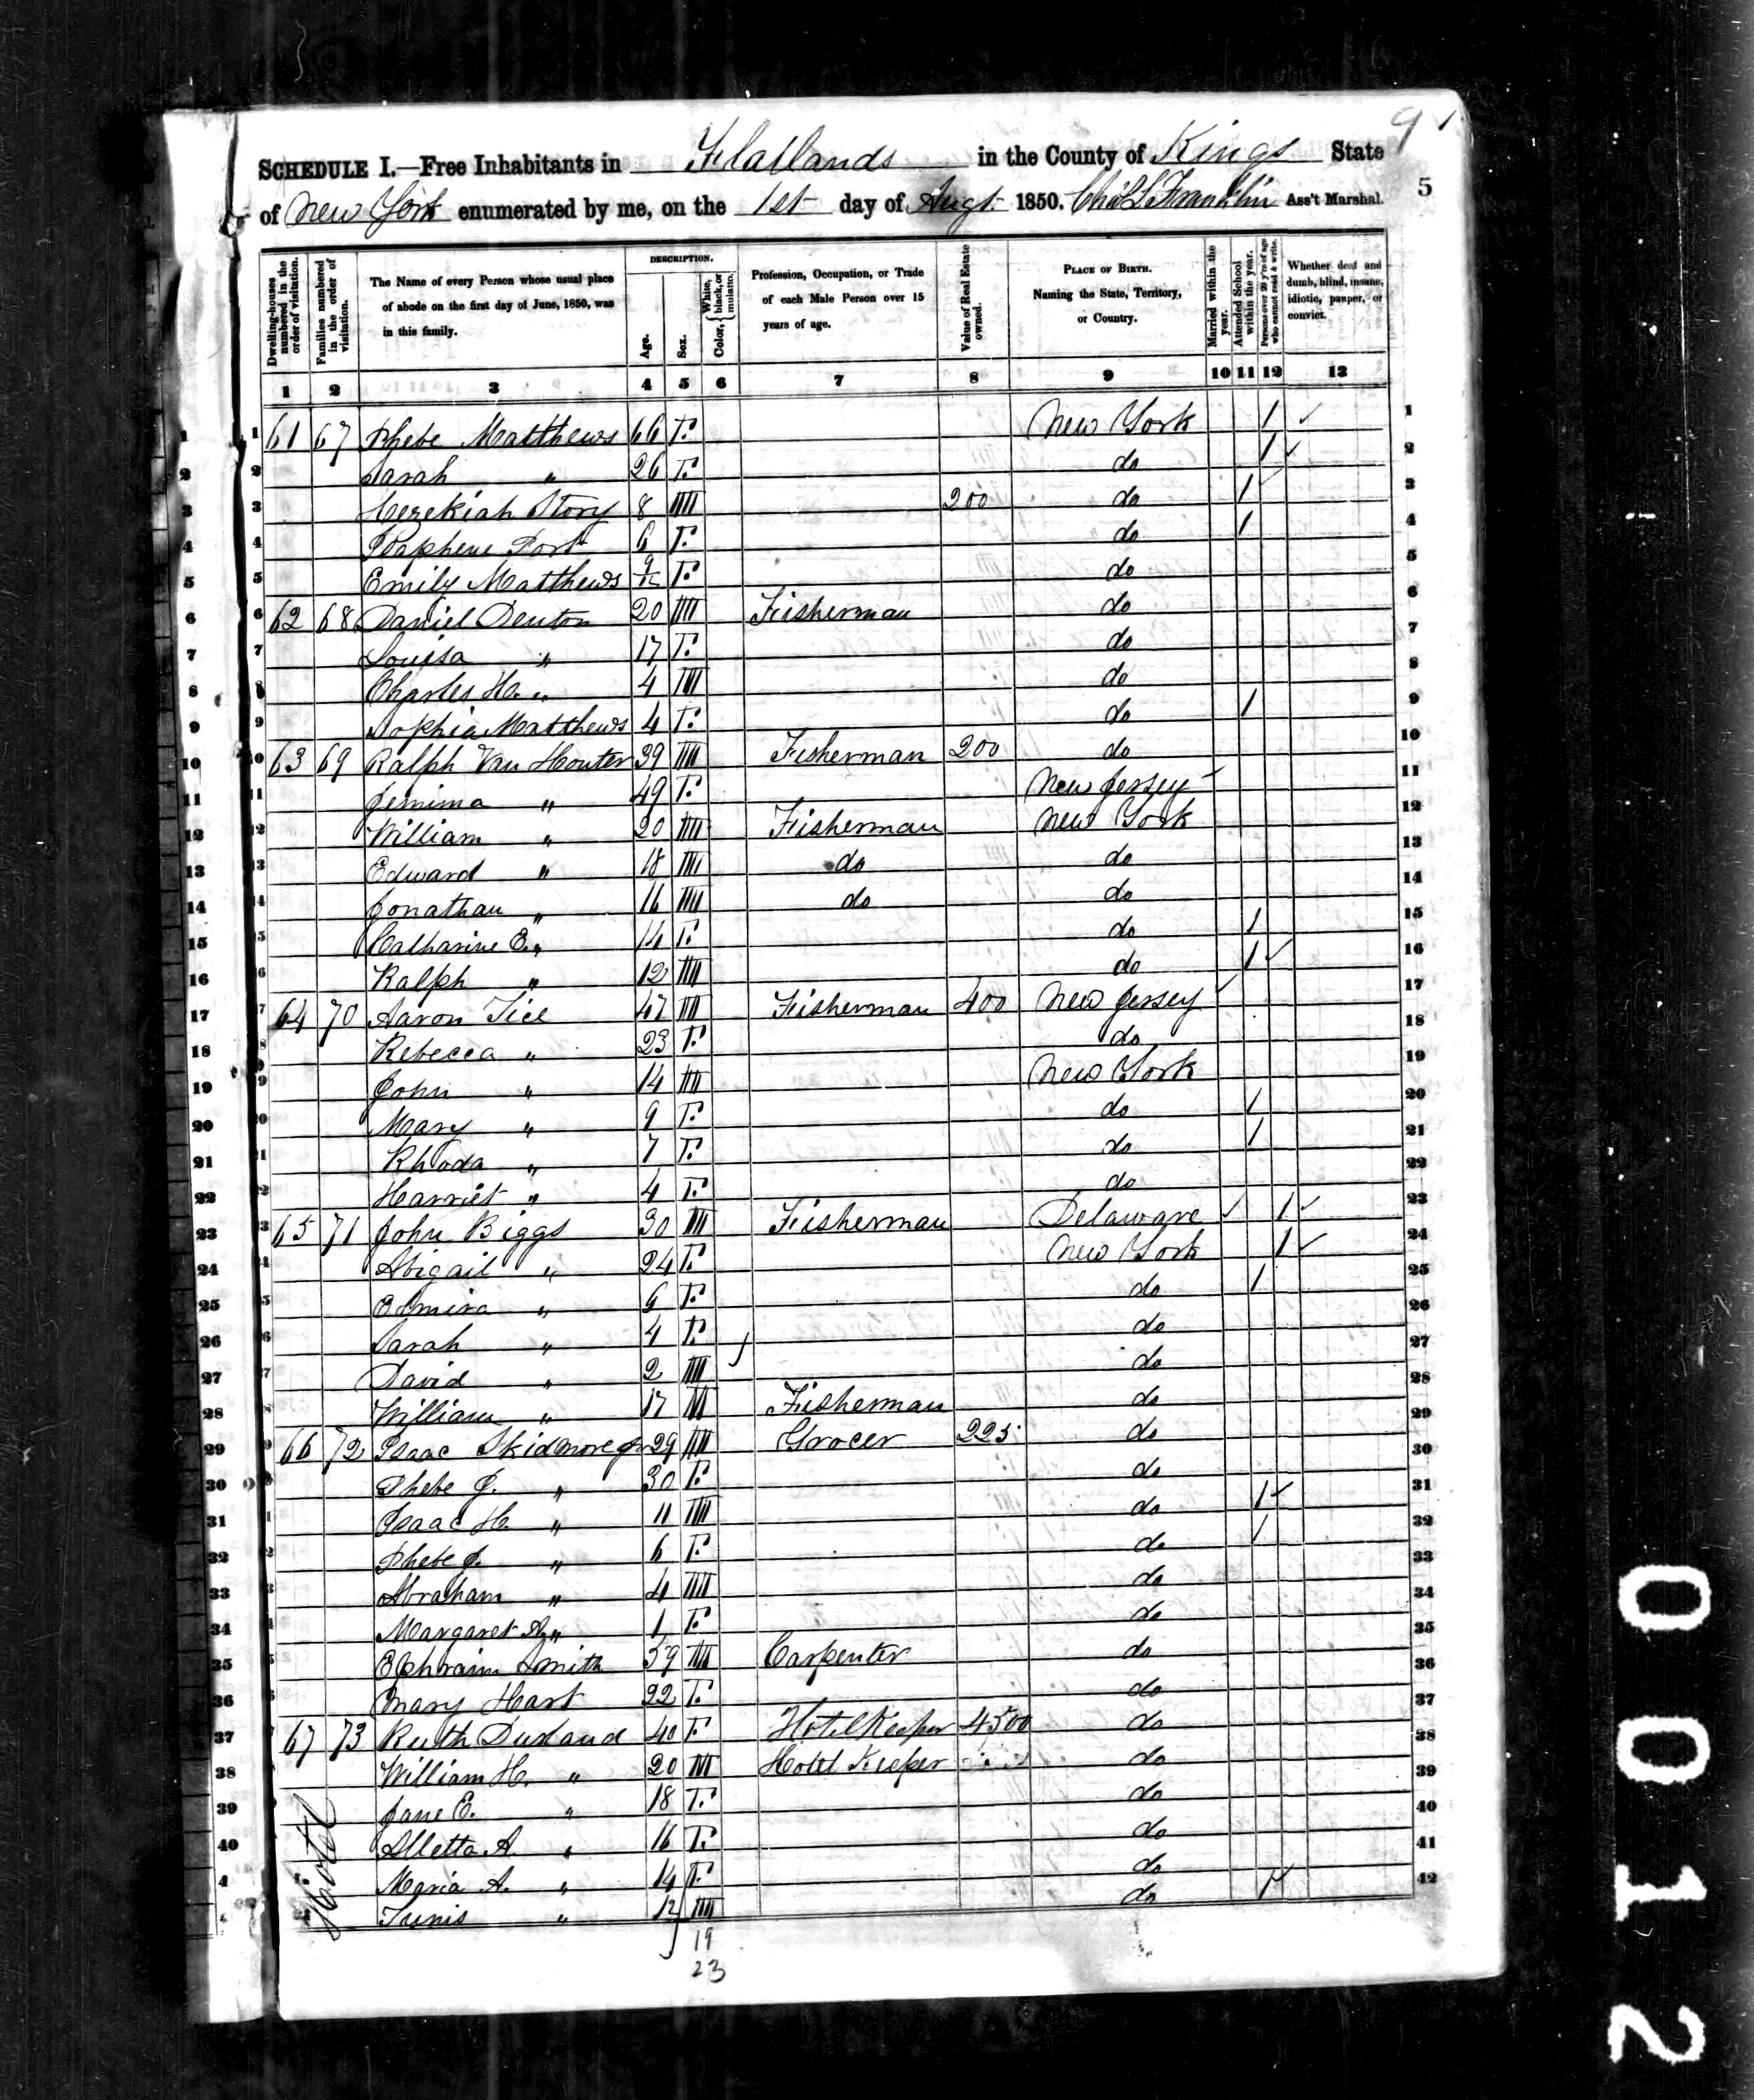 9
5
SCHEDULE I.—Free Inhabitants in Flatlands in the County of Kings State
of New York enumerated by me, on the 1st day of Augt. 1850. Chs L Franklin Ass't Marshal.
Dwelling-houses numbered in the order of visitation.
Families numbered in the order of visitation.
The Name of every Person whose usual place of abode on the first day of June, 1850, was in this family.
DESCRIPTION.
Age.
Sex.
Color, White, black, or mulatto.
Profession, Occupation, or Trade of each Male Person over 15 years of age.
Value of Real Estate owned.
PLACE OF BIRTH. Naming the State, Territory, or Country.
Married within the year.
Attended School within the year.
Persons over 20 y'rs of age who cannot read & write.
Whether deaf and dumb, blind, insane, idiotic, pauper, or convict.
1 2 3 4 5 6 7 8 9 10 11 12 13
1 61 67 Phebe Matthews 66 F. New York 1 1
2 Sarah " 26 F. do 1 2
3 Hezekiah Story 8 M 200 do 1 3
4 6 F. do 1 4
5 Emily Matthews 9/12 F. do 5
6 62 68 Daniel Denton 20 M Fisherman do 6
7 Louisa " 17 F. do 7
8 Charles H. " 4 M do 8
9 Sophia Matthews 4 F. do 1 9
10 63 69 Ralph Van Houter 39 M Fisherman 200 do 10
11 Jemima " 49 F. New Jersey 11
12 William " 20 M Fisherman New York 12
13 Edward " 18 M do do 13
14 Jonathan " 16 M do do 14
15 Catharine E. " 14 F. do 1 15
16 Ralph " 12 M do 1 16
17 64 70 Aaron Tice 47 M Fisherman 400 New Jersey 17
18 Rebecca " 23 F. do 18
19 John " 14 M New York 19
20 Mary " 9 F. do 1 20
21 Rhoda " 7 F. do 1 21
22 Harriet " 4 F. do 22
23 65 71 John Biggs 30 M Fisherman Delaware 1 23
24 Abigail " 24 F. New York 1 24
25 Elmira " 6 F. do 1 25
26 Sarah " 4 F. do 26
27 David " 2 M do 27
28 William " 17 M Fisherman do 28
29 66 72 Isaac Skidmore Jr 29 M Grocer 225 do 29
30 Phebe J. " 30 F. do 30
31 Isaac H. " 11 M do 1 31
32 Phebe J. " 6 F. do 1 32
33 Abraham " 4 M do 33
34 Margaret A. " 1 F. do 34
35 Ephraim Smith 59 M Carpenter do 35
36 Mary Hart 22 F. do 36
37 67 73 Ruth Durland 40 F Hotel Keeper 4500 do 37
38 William H. " 20 M Hotel Keeper do 38
39 Jane E. " 18 F. do 39
40 Alletta A. " 16 F. do 40
Maria A. " 14 F. do 41
Tunis " 12 M do 1 42
Hotel
19
23
0012